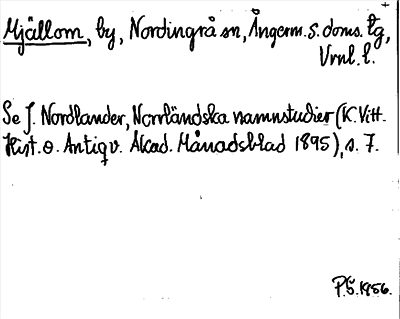 Mjällom, by, Nordingrå sn, Ångerm. s. doms. tg,
Vrnl. l.
Se J. Nordlander, Norrländska namnstudier (K. Vitt.
Hist. o. Antiqv. Akad. Månadsblad 1895), s. 7.
P.S. 1956.